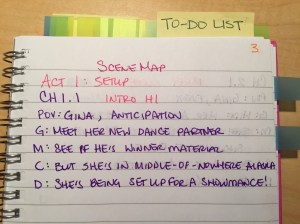 TO-DO LIST
3
SCENE MAP
ACT 1: SETUP
CH 1.1 INTRO H1
POV: GINA, ANTICIPATION
G: MEET HER NEW DANCE PARTNER
M: SEE IF HE'S WINNER MATERIAL
C: BUT SHE'S IN MIDDLE-OF-NOWHERE ALASKA
D: SHE'S BEING SET UP FOR A SHOWMANCE!